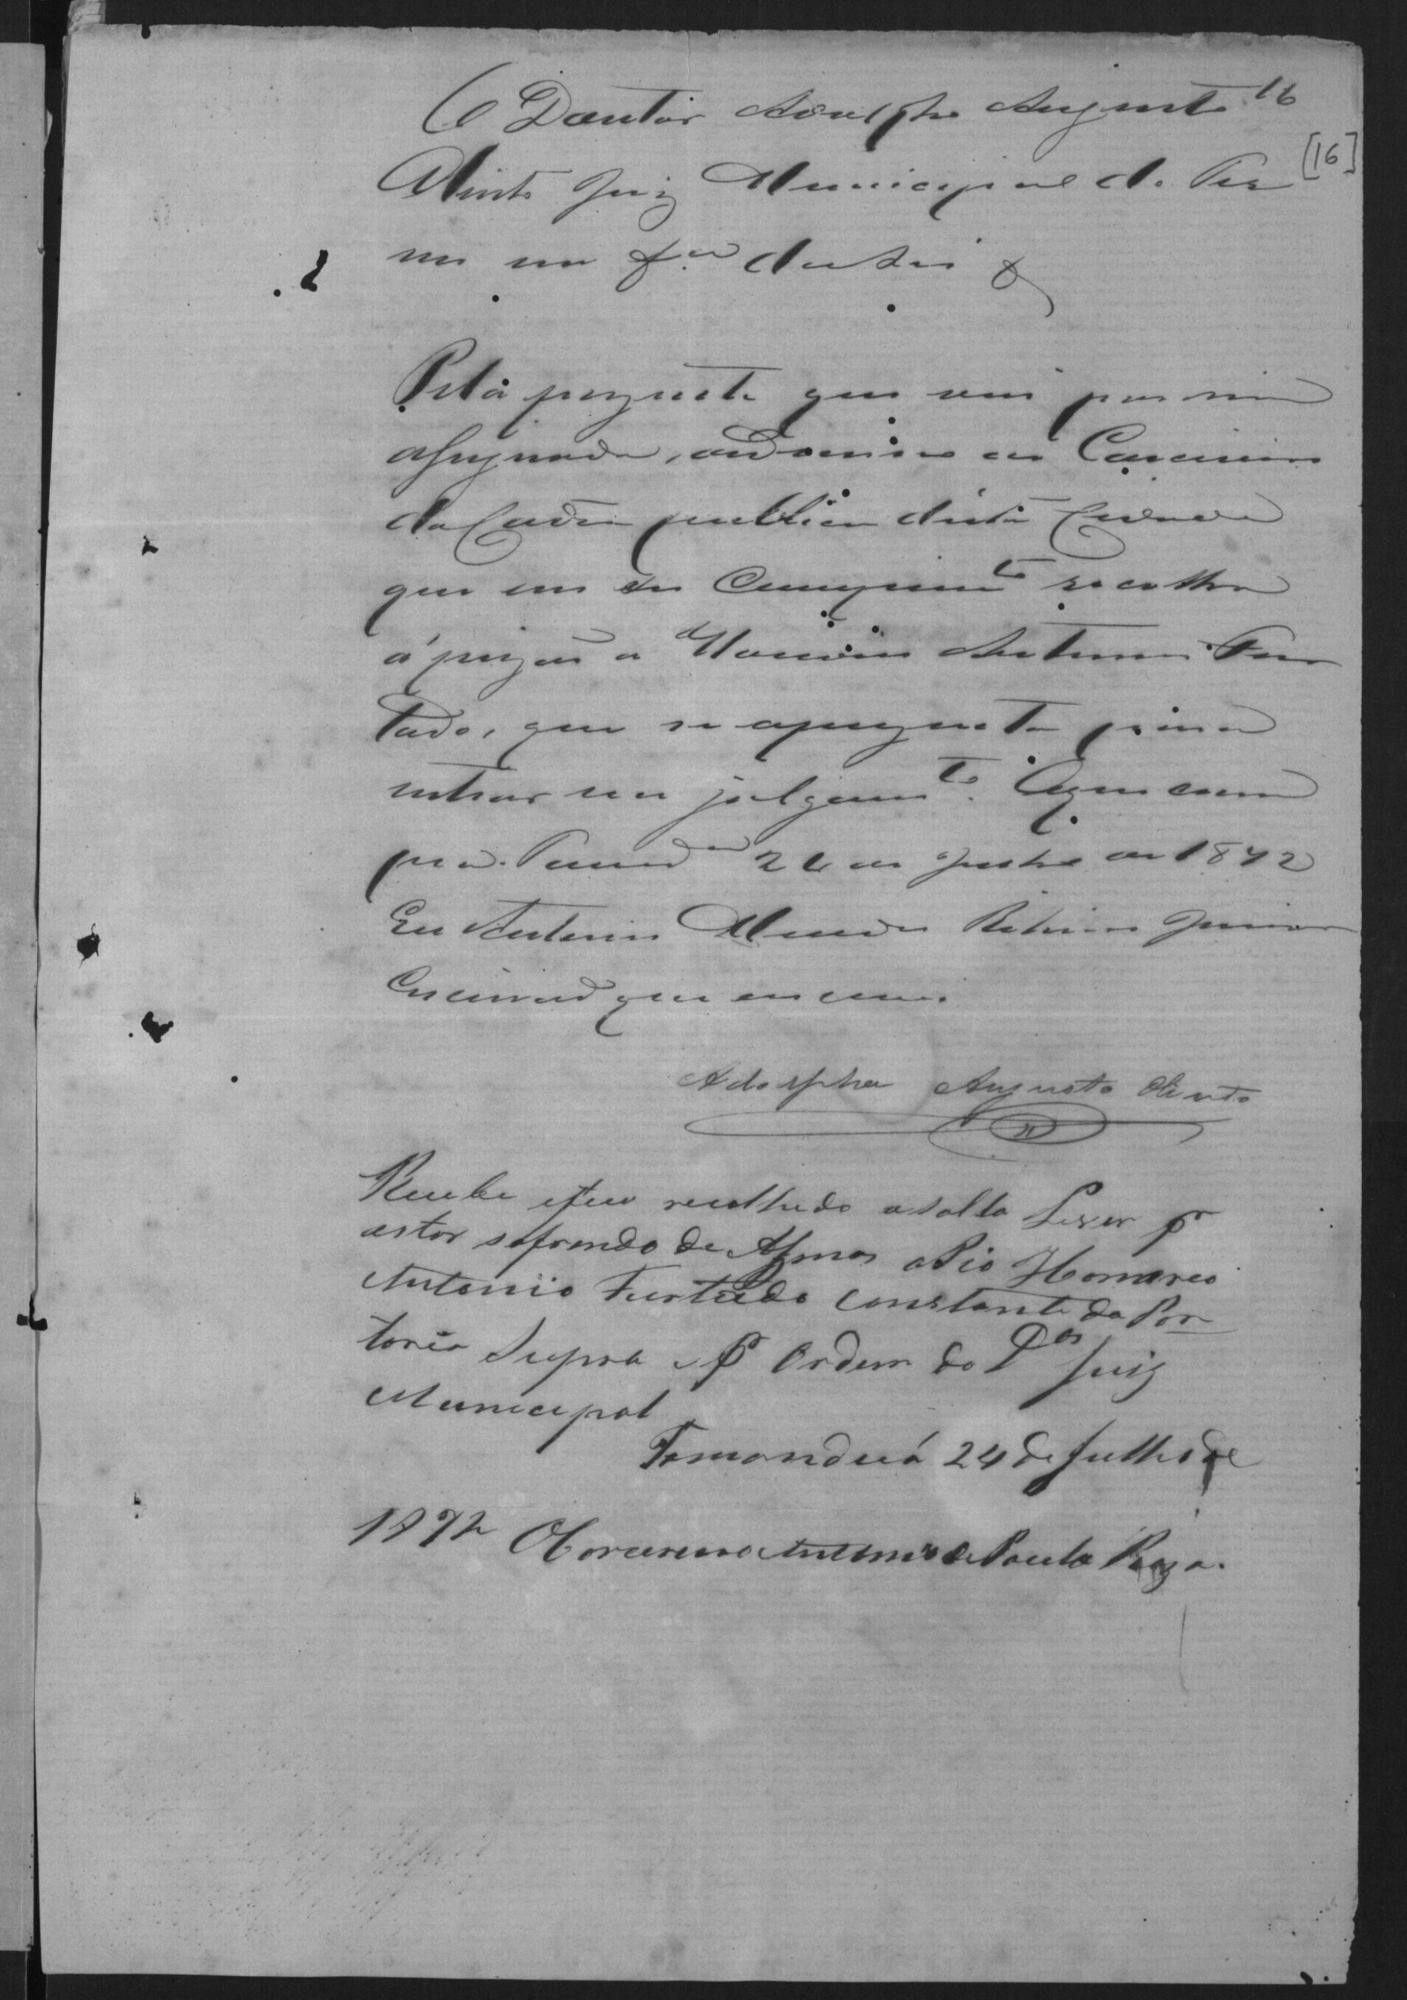 O Doutor Adolpho Augusto 16
[16]
Olinto Juiz Municipal do Ter
mo na fra da Lei &
Pela prezente que vai por mim
assignada, ordeno ao Carcereiro
da Cadea publica desta Cidade
que em seu cumprimto recolha
á prizão a Antonio Fur
tado, que se aprezenta para
entrar em julgamto. O que cum
pra. 24 de Julho de 1872
Eu Antonio Ribeiro Junior
Escrivão que escrevi.
Adolpho Augusto Olinto
Recebi e fica recolhido a Salla Livre pr
estar sofrendo de o Rio
Antonio Furtado constante da Por
taria Supra e pr Ordem do Dor Juiz
Municipal
Tamanduá 24 de Julho de
1872 Antonio de Paula